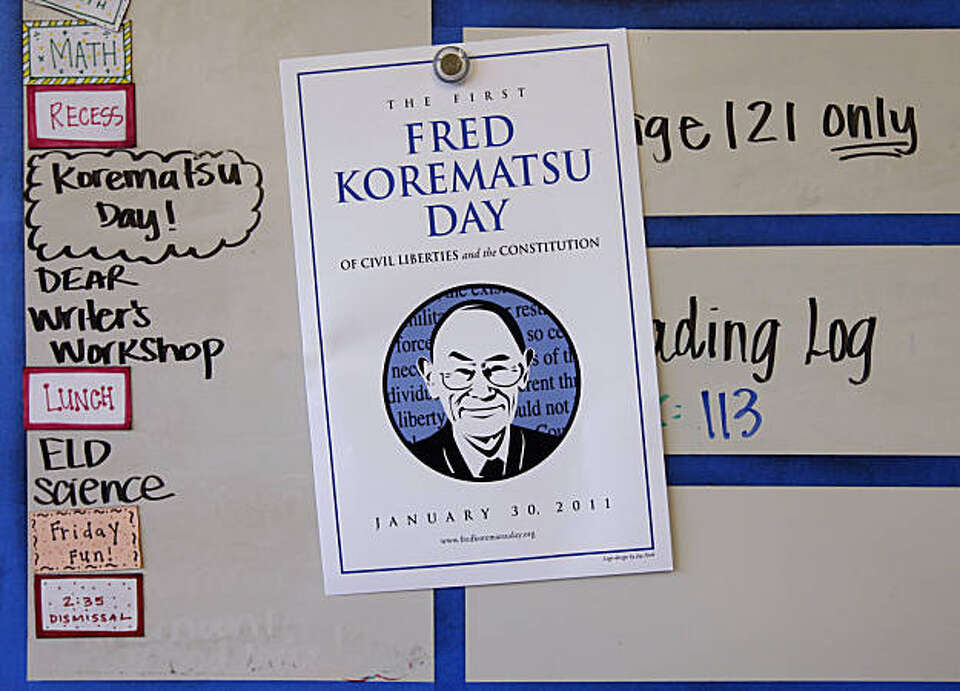 MATH
RECESS
Korematsu
Day!
DEAR
Writer's
Workshop
LUNCH
ELD
Science
Friday
Fun!
2:35
DISMISSAL
THE FIRST
FRED
KOREMATSU
DAY
OF CIVIL LIBERTIES and the CONSTITUTION
the exist
milita resu
force so ce
nece s of th
dividu rent thr
liberty uld not
Con
JANUARY 30, 2011
www.fredkorematsuday.org
age 121 only
ading Log
113